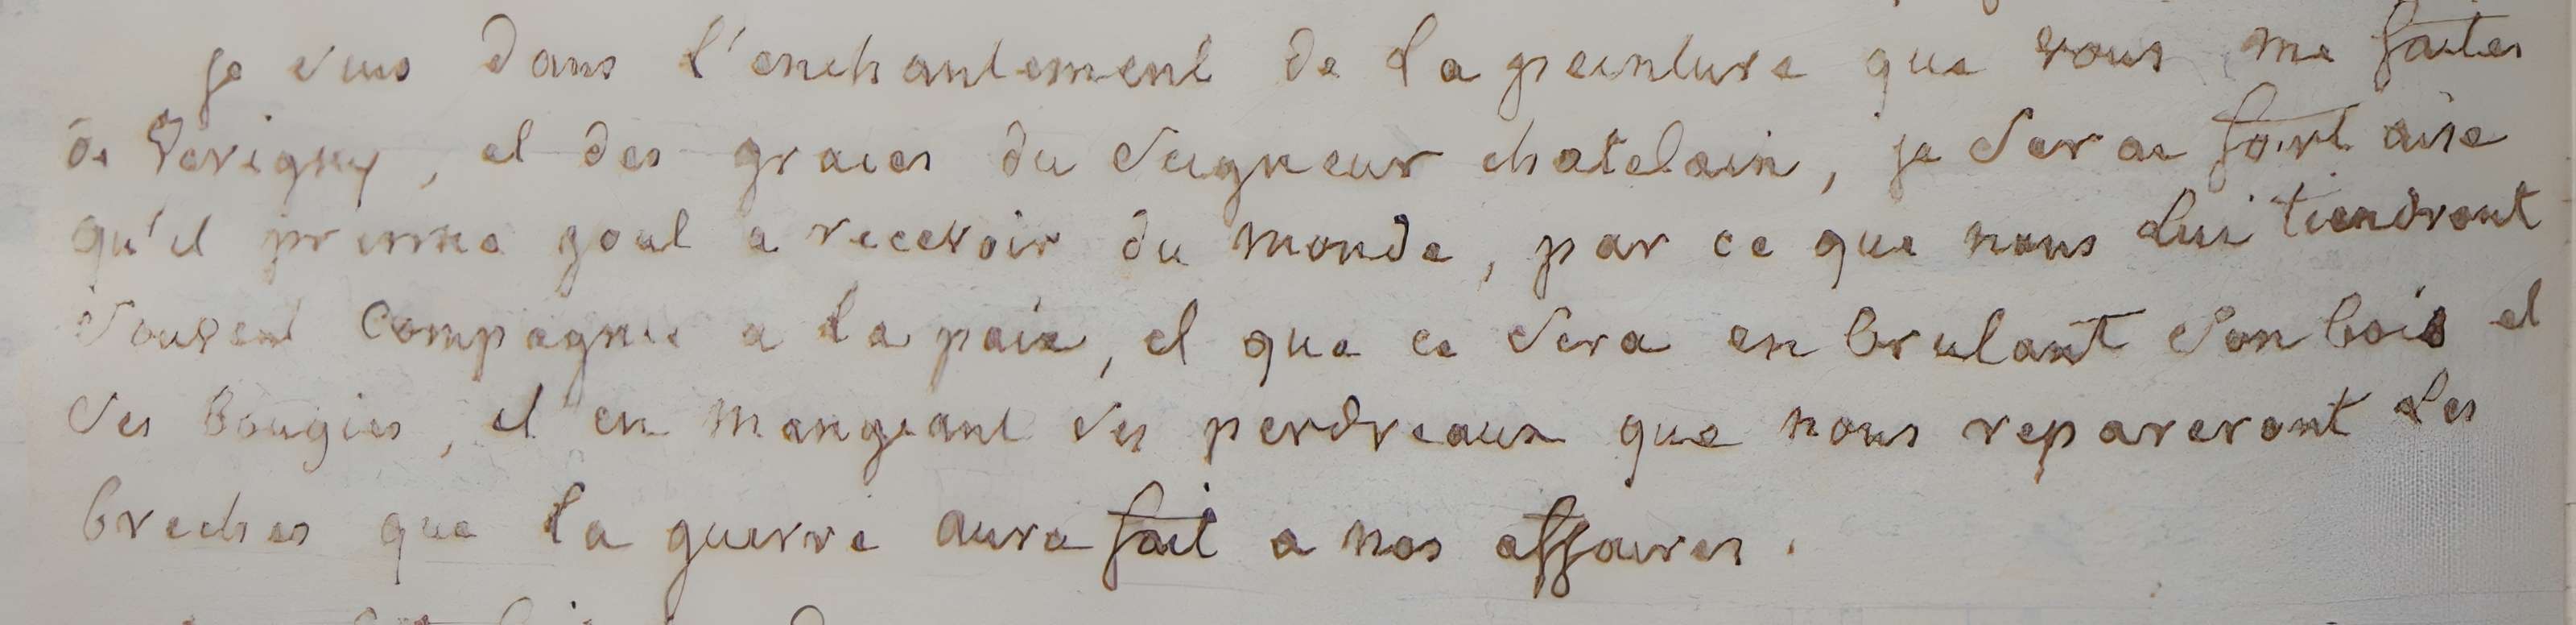 je suis dans l'enchantement de la peinture que vous me faites
de Verigny, et des graces du Seigneur chatelain, je serai fort aise
qu'il prenne gout a recevoir du monde, par ce que nous lui tiendront
souvent compagnie a la paix, et que ce sera en brulant son bois et
ses bougies, et en mangeant ses perdreaux que nous repareront les
breches que la guerre aura fait a nos affaires.